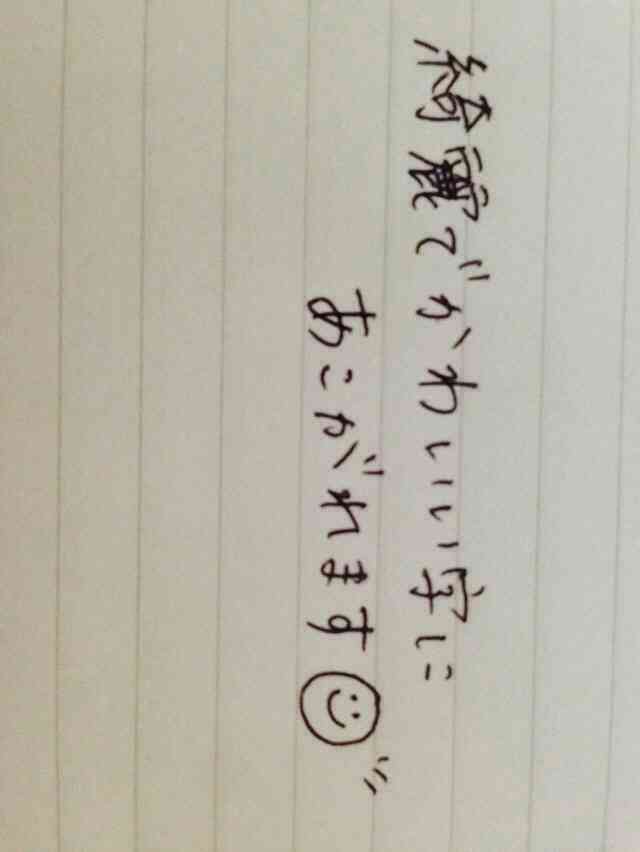 綺麗でかわいい字に
あこがれます